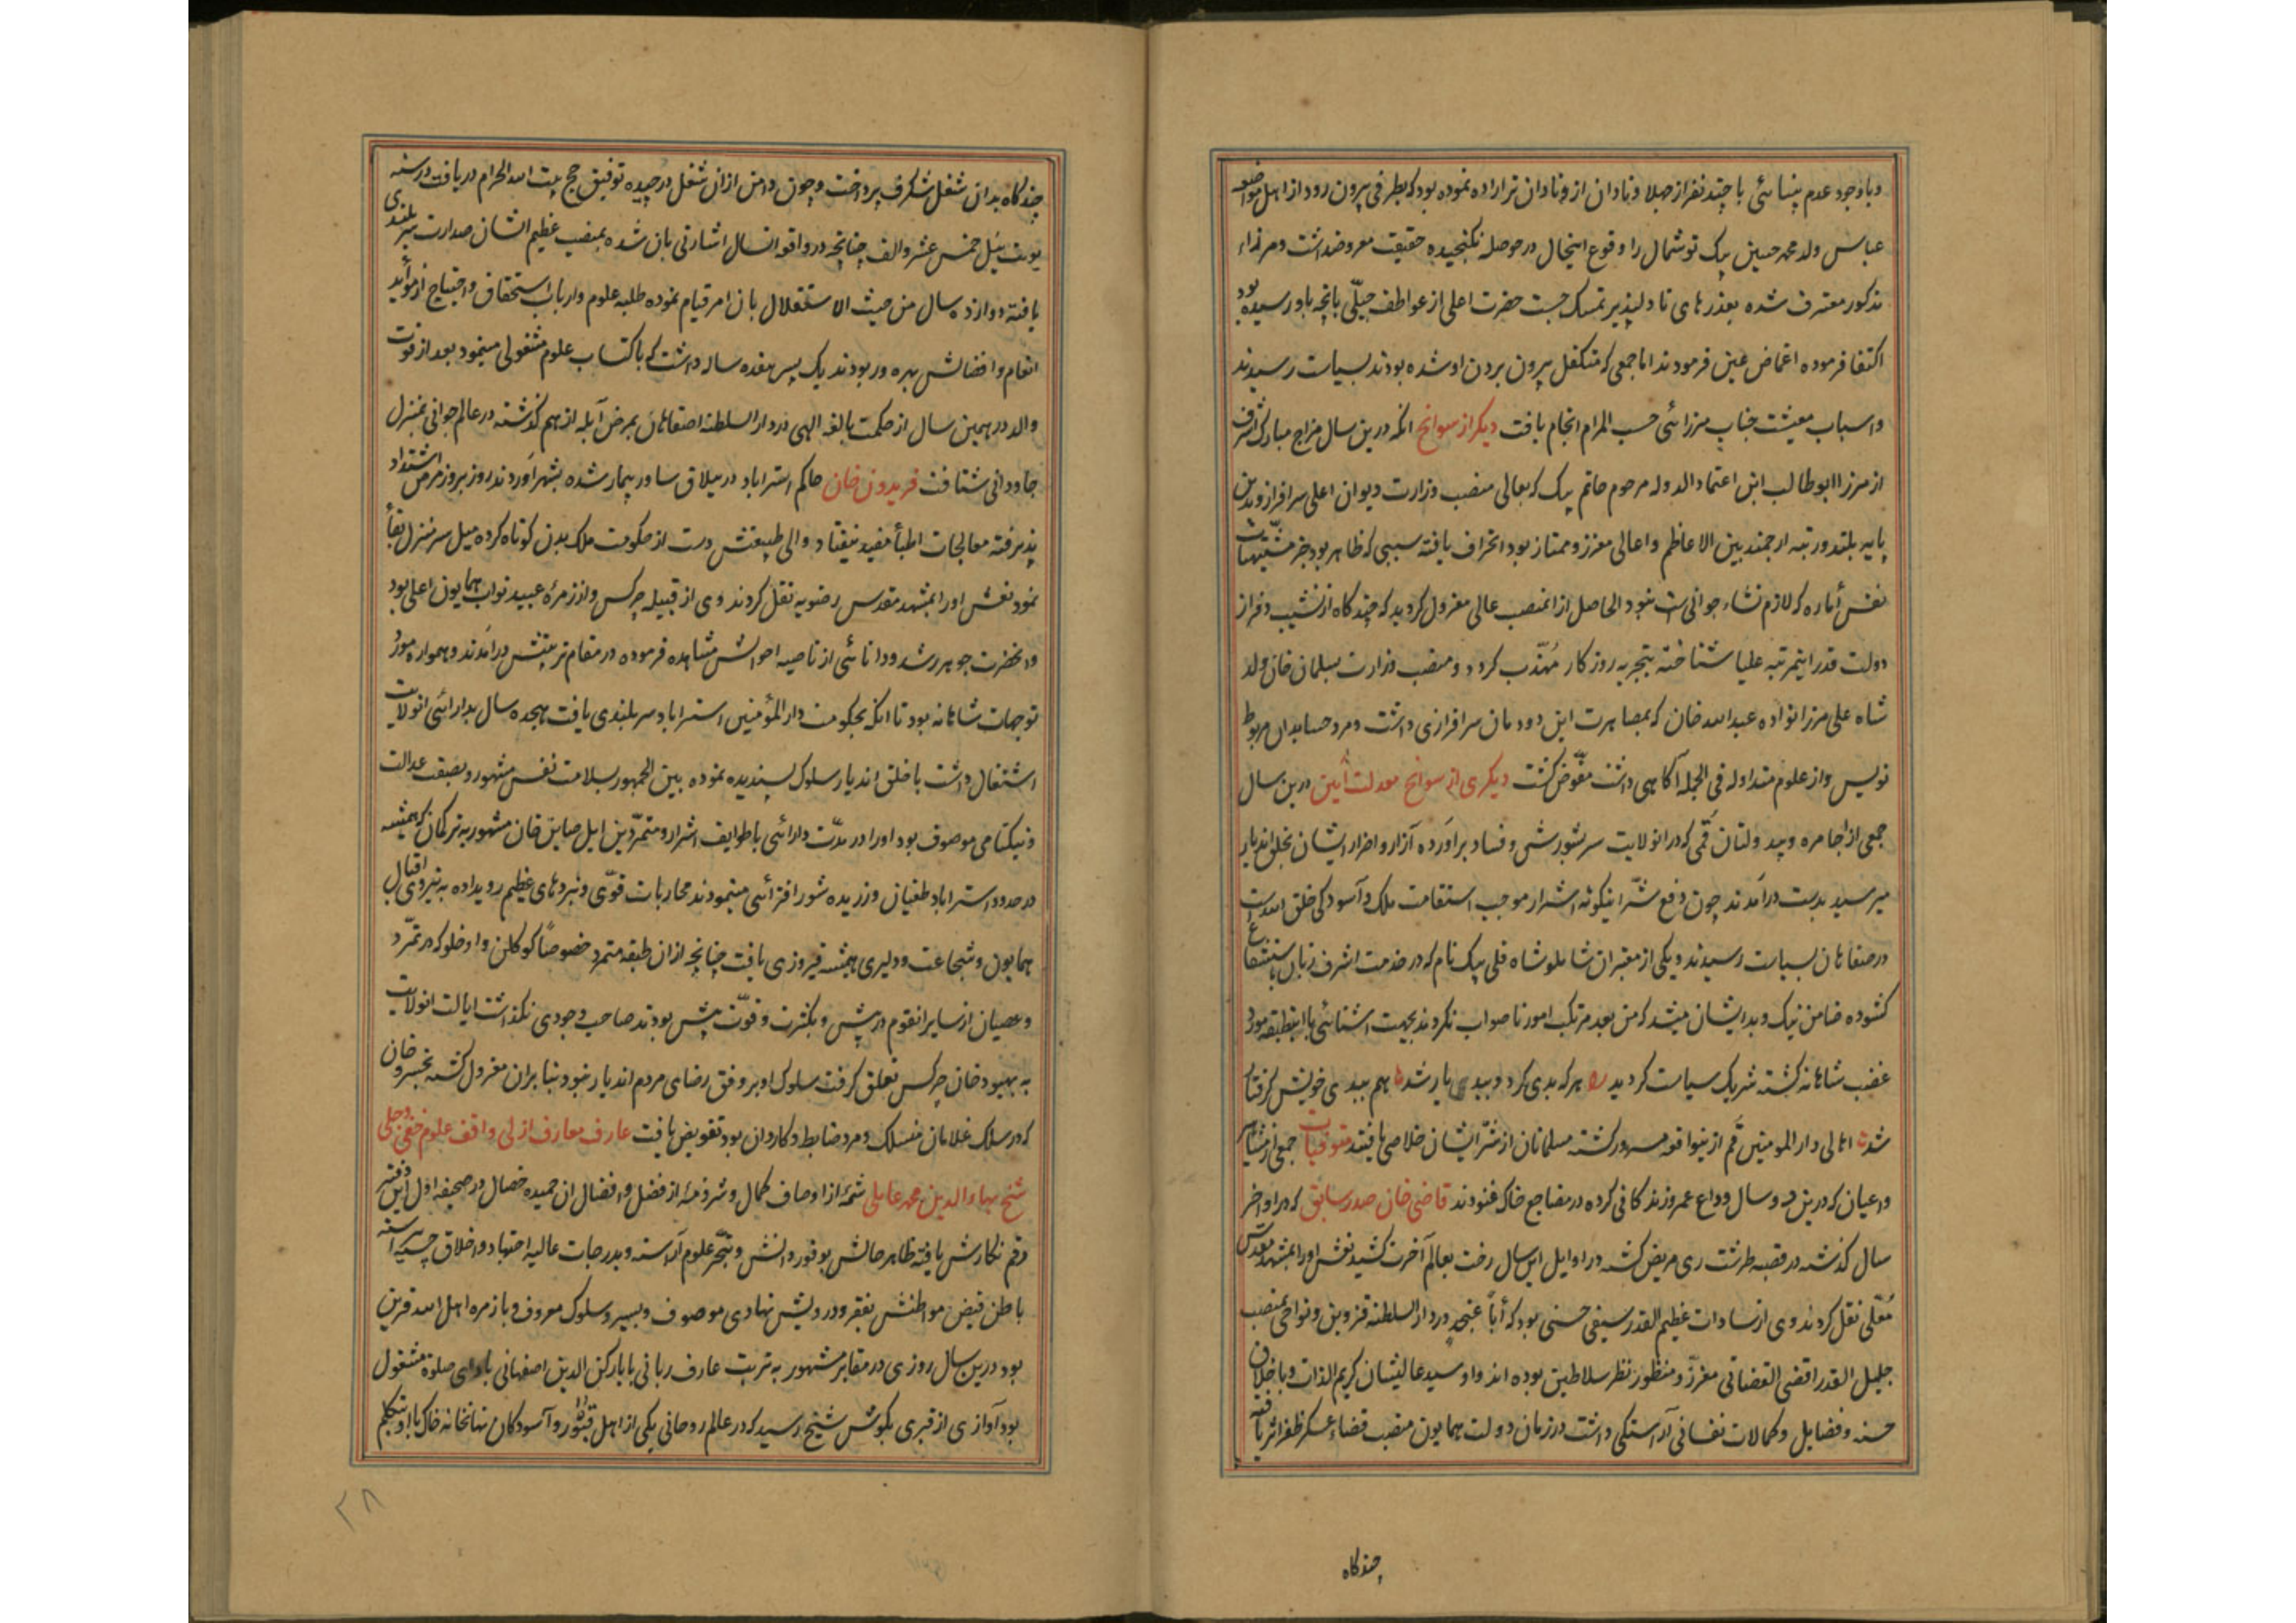 وباوجود عدم بینائی با چند نفر از صبلا و نادان از و نادان تر اراده نموده بود که بطرفی بیرون رود از اهل مواضعه
عباس ولد محمد حسین بیک توشمال را وقوع اینحال در حوصله نکنجیده حقیقت معروضداشت و میرزاء
مذکور معترف شده بعذرهای نادلپذیر تمسک جست حضرت اعلی از عواطف جبلّی بانچه باو رسیده بود
اکتفا فرموده اغماض عین فرمودند اما جمعی که متکفل بیرون بردن او شده بودند بسیاست رسیدند
واسباب معیشت جناب میرزائی حسب المرام انجام یافت دیکر از سوانح انکه درین سال مزاج مبارک اشرف
از میرزا ابوطالب ابن اعتماد الدوله مرحوم حاتم بیک که بعالی منصب وزارت دیوان اعلی سرافراز و بدین
پایه بلند و رتبه ارجمند بین الاعاظم واعالی معزز و ممتاز بود انحراف یافته سببی که ظاهر بود جز مشتهیات
نفس أماره که لازم نشاء جوانی ست نبود الحاصل از انمنصب عالی معزول کردید که چند کاه از نشیب و فراز
دولت قدر اینمرتبه علیا شناخته بتجربه روزکار مُهذّب کردد ومنصب وزارت بسلمان خان ولد
شاه علی میرزا نواده عبدالله خان که بمصاهرت این دودمان سرافرازی داشت و مرد حسابدان مربوط
نویس واز علوم متداوله فی الجمله آکاهی داشت مفّوض کشت دیکری از سوانح معدلت آیین درین سال
جمعی از اجامره وبید ولتان قمی که در انولایت سر بشورش وفساد برآورده آزار واضرار ایشان بخلق اندیار
میرسید بدست درآمدند چون دفع شّر اینکونه اشرار موجب استقامت ملک وآسودکی خلق الله است
در صفاهان بسیاست رسیدند ویکی از معتبران شاملو شاه قلی بیک نام که در خدمت اشرف زبان باستشفاع
کشوده ضامن نیک وبد ایشان میشد که من بعد مرتکب امور ناصواب نکردند بجهت اشنائی با اینطبقه مورد
غضب شاهانه کشته شریک سیاست کردید هر که بدی کرد وببدی یار شد هم ببدی خویش کرفتار
شد اهالی دار المومنین قم از ینواقعه مسرور کشته مسلمانان از شّر ایشان خلاصی یافتند متوفیات جمعی از مشاهیر
واعیان که درین دو سال وداع عمر و زندکانی کرده در مضاجع خاک غنودند قاضی خان صدر سابق که در اواخر
سال کذشته در قصبه طرشت ری مریض کشته در اوایل این سال رخت بعالم آخرت کشید نعش اورا بمشهد مقدّس
مُعّلی نقل کردند وی از سادات عظیم القدر سیفی حسنی بود که أباً عنجدٍ در دار السلطنه قزوین ونواحی بمنصب
جلیل القدر اقضی القضاتی معزّز ومنظور نظر سلاطین بوده اند واو سید عالیشان کریم الذات وباخلاق
حسنه وفضایل وکمالات نفسانی آراستکی داشت در زمان دولت همایون منصب قضاء عسکر ظفر اثر یافته
چند کاه
چند کاه بدان شغل شکرف پرداخت وچون دامن ازان شغل درچیده توفیق حج بیت الله الحرام دریافت در سنه
یونت ییل خمس عشر والف چنانچه در وقایع انسال اشارتی بان شده بمنصب عظیم الشان صدارت سربلندی
یافته دوازده سال من حیث الاستقلال بان امر قیام نموده طلبه علوم وارباب استحقاق واحتیاج از مواید
انعام وافضالش بهره ور بودند یک پسر هفده ساله داشت که باکتساب علوم مشغولی مینمود بعد از فوت
والد در همین سال از حکمت بالغه الهی در دار السلطنه اصفاهان بمرض آبله از هم کذشته در عالم جوانی بمنزل
جاودانی شتافت فریدون خان حاکم استراباد در ییلاق ساور بیمار شده بشهر آوردند روز بروز مرض اشتداد
پذیرفته معالجات اطبأ مفید نیفتاد و والی طبیعتش دست از حکومت ملک بدن کوتاه کرده میل سرمنزل بقأ
نمود نعش اورا بمشهد مقدس رضویه نقل کردند وی از قبیله چرکس واز زمره عبید نواب همایون اعلی بود
وانحضرت جوهر رشد ودانائی از ناصیه احوالش مشاهده فرموده در مقام تربیتش درآمدند وهمواره مورد
توجهات شاهانه بود تا انکه بحکومت دار المؤمنین استراباد سربلندی یافت هیجده سال بدارائی انولایت
اشتغال داشت با خلق اندیار سلوک پسندیده نموده بین الجمهور بسلامت نفس مشهور وبصفت عدالت
ونیکنامی موصوف بود اورا در مدّت دارائی باطوایف اشرار ومتمرّدین ایل صاین خان مشهور به ترکمان که همیشه
در حدود استراباد طغیان ورزیده شور افزائی مینمودند محاربات قوّی ونبردهای عظیم رویداده به نیروی اقبال
همایون وشجاعت ودلیری همیشه فیروزی یافت چنانچه ازان طبقه متمرد خصوصاً کوکلن واوخلو که در تمّرد
وعصیان از سایر انقوم در پیش وبکثرت وقوّت بیش بودند صاحب وجودی نکذاشت ایالت انولایت
به بهبود خان چرکس تعلق کرفت سلوک او بر وفق رضای مردم اندیار نبود بنابران معزول کشته بخسرو خان
که در سلک غلامان منسلک ومرد ضابط وکاردان بود تفویض یافت عارف معارف ازلی واقف علوم خفی وجلی
شیخ بهاء الدین محمد عاملی شمّه از اوصاف کمال وشرذمه از فضل وافضال ان حمیده خصال در صحیفه اول این دفتر
رقم نکارش یافته ظاهر حالش بوفور دانش وتبحّر علوم آراسته وبدرجات عالیه اجتهاد واخلاق حسنه پیراسته
باطن فیض مواطنش بفقر ودرویش نهادی موصوف وبسیر وسلوک معروف وبا زمره اهل الله قرین
بود درین سال روزی در مقابر مشهور به تربت عارف ربانی بابا رکن الدین اصفهانی بادای صلوة مشغول
بود آوازی از قبری بکوش شیخ رسید که در عالم روحانی یکی از اهل قبُور وآسودکان نهانخانه خاک با او تکلم
۲۸